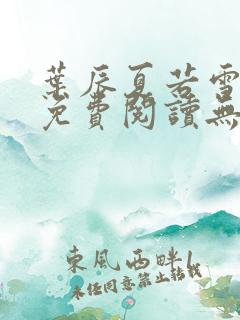 葉辰夏若雪
免費閱讀無
東風西畔1
未經同意禁止轉載